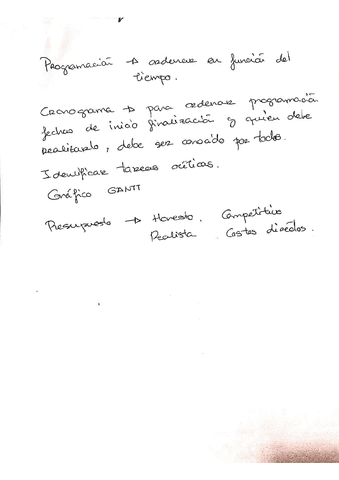 Programación → ordenar en función del
tiempo.
Cronograma → para ordenar programación
fechas de inicio finalización y quien debe
realizarlo, debe ser conocido por todos.
Identificar tareas críticas.
Gráfico GANTT
Presupuesto → Honesto. Competitivo
Realista Costes directos.